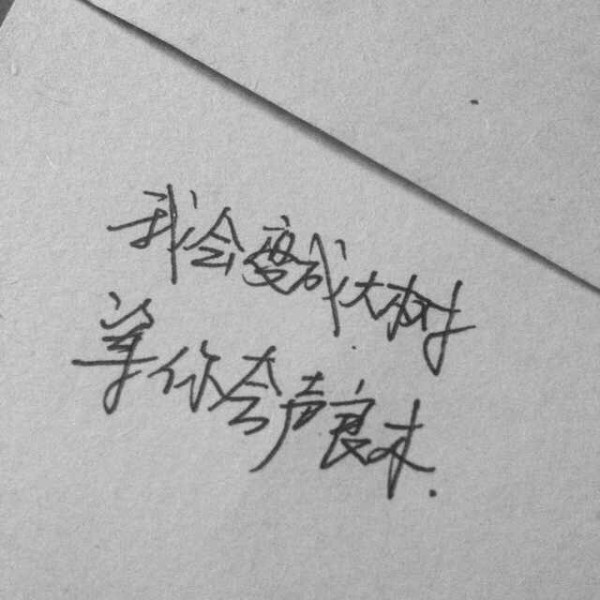 我会变成大树
等你夸声良木.